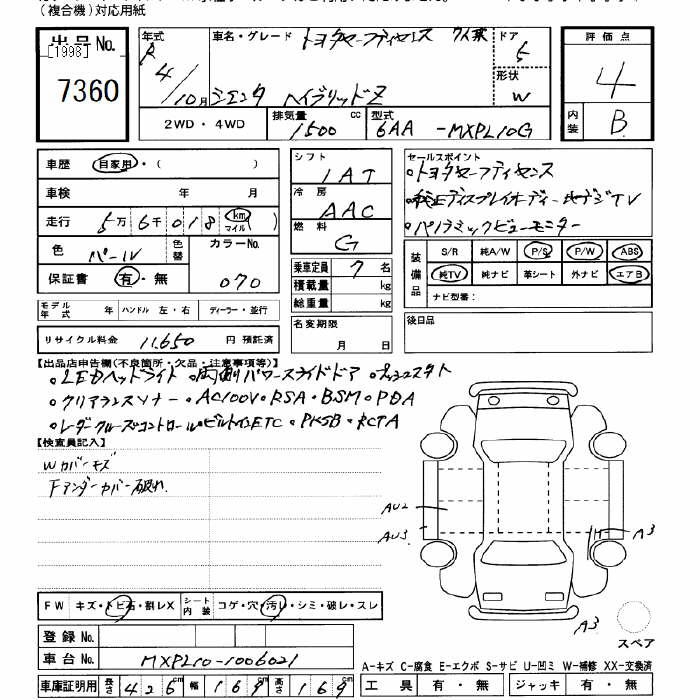 (複合機)対応用紙
出品No.
[1998]
7360
年式
R4/10月
車名・グレード
トヨタセーフティセンス 7人乗
シエンタ ハイブリッドZ
ドア
5
形状
W
評価点
4
内装
B
2WD・4WD
排気量
1500 cc
型式
6AA -MXPL10G
車歴 自家用・( )
車検 年 月
走行 5万6千018 (km マイル)
色 パール
色替
カラーNo.
070
保証書 有・無
シフト
IAT
冷房
AAC
燃料
G
乗車定員 7 名
積載量 kg
総重量 kg
セールスポイント
・トヨタセーフティセンス
・純正ディスプレイオーディオ 地デジTV
・パノラミックビューモニター
装備品
S/R 純A/W P/S P/W ABS
純TV 純ナビ 革シート 外ナビ エアB
ナビ型番:
モデル年式 年 ハンドル 左・右 ディーラー・並行
リサイクル料金 11,650 円 預託済
名変期限
月 日
後日品
【出品店申告欄(不良箇所・欠品・注意事項等)】
・LEDヘッドライト ・両側パワースライドドア ・プッシュスタート
・クリアランスソナー ・AC100V・RSA・BSM・PDA
・レーダークルーズコントロール・ビルトインETC ・PKSB・RCTA
【検査員記入】
Wカバーモズ
Fアンダーカバー破れ
AU2
AU3
A3
A3
スペア
FW キズ・トビ石・割レX
シート内装 コゲ・穴・汚レ・シミ・破レ・スレ
登録No.
車台No. MXPL10-1006021
車庫証明用 長さ 426cm 幅 169cm 高さ 169cm
A-キズ C-腐食 E-エクボ S-サビ U-凹ミ W-補修 XX-交換済
工具 有・無 ジャッキ 有・無